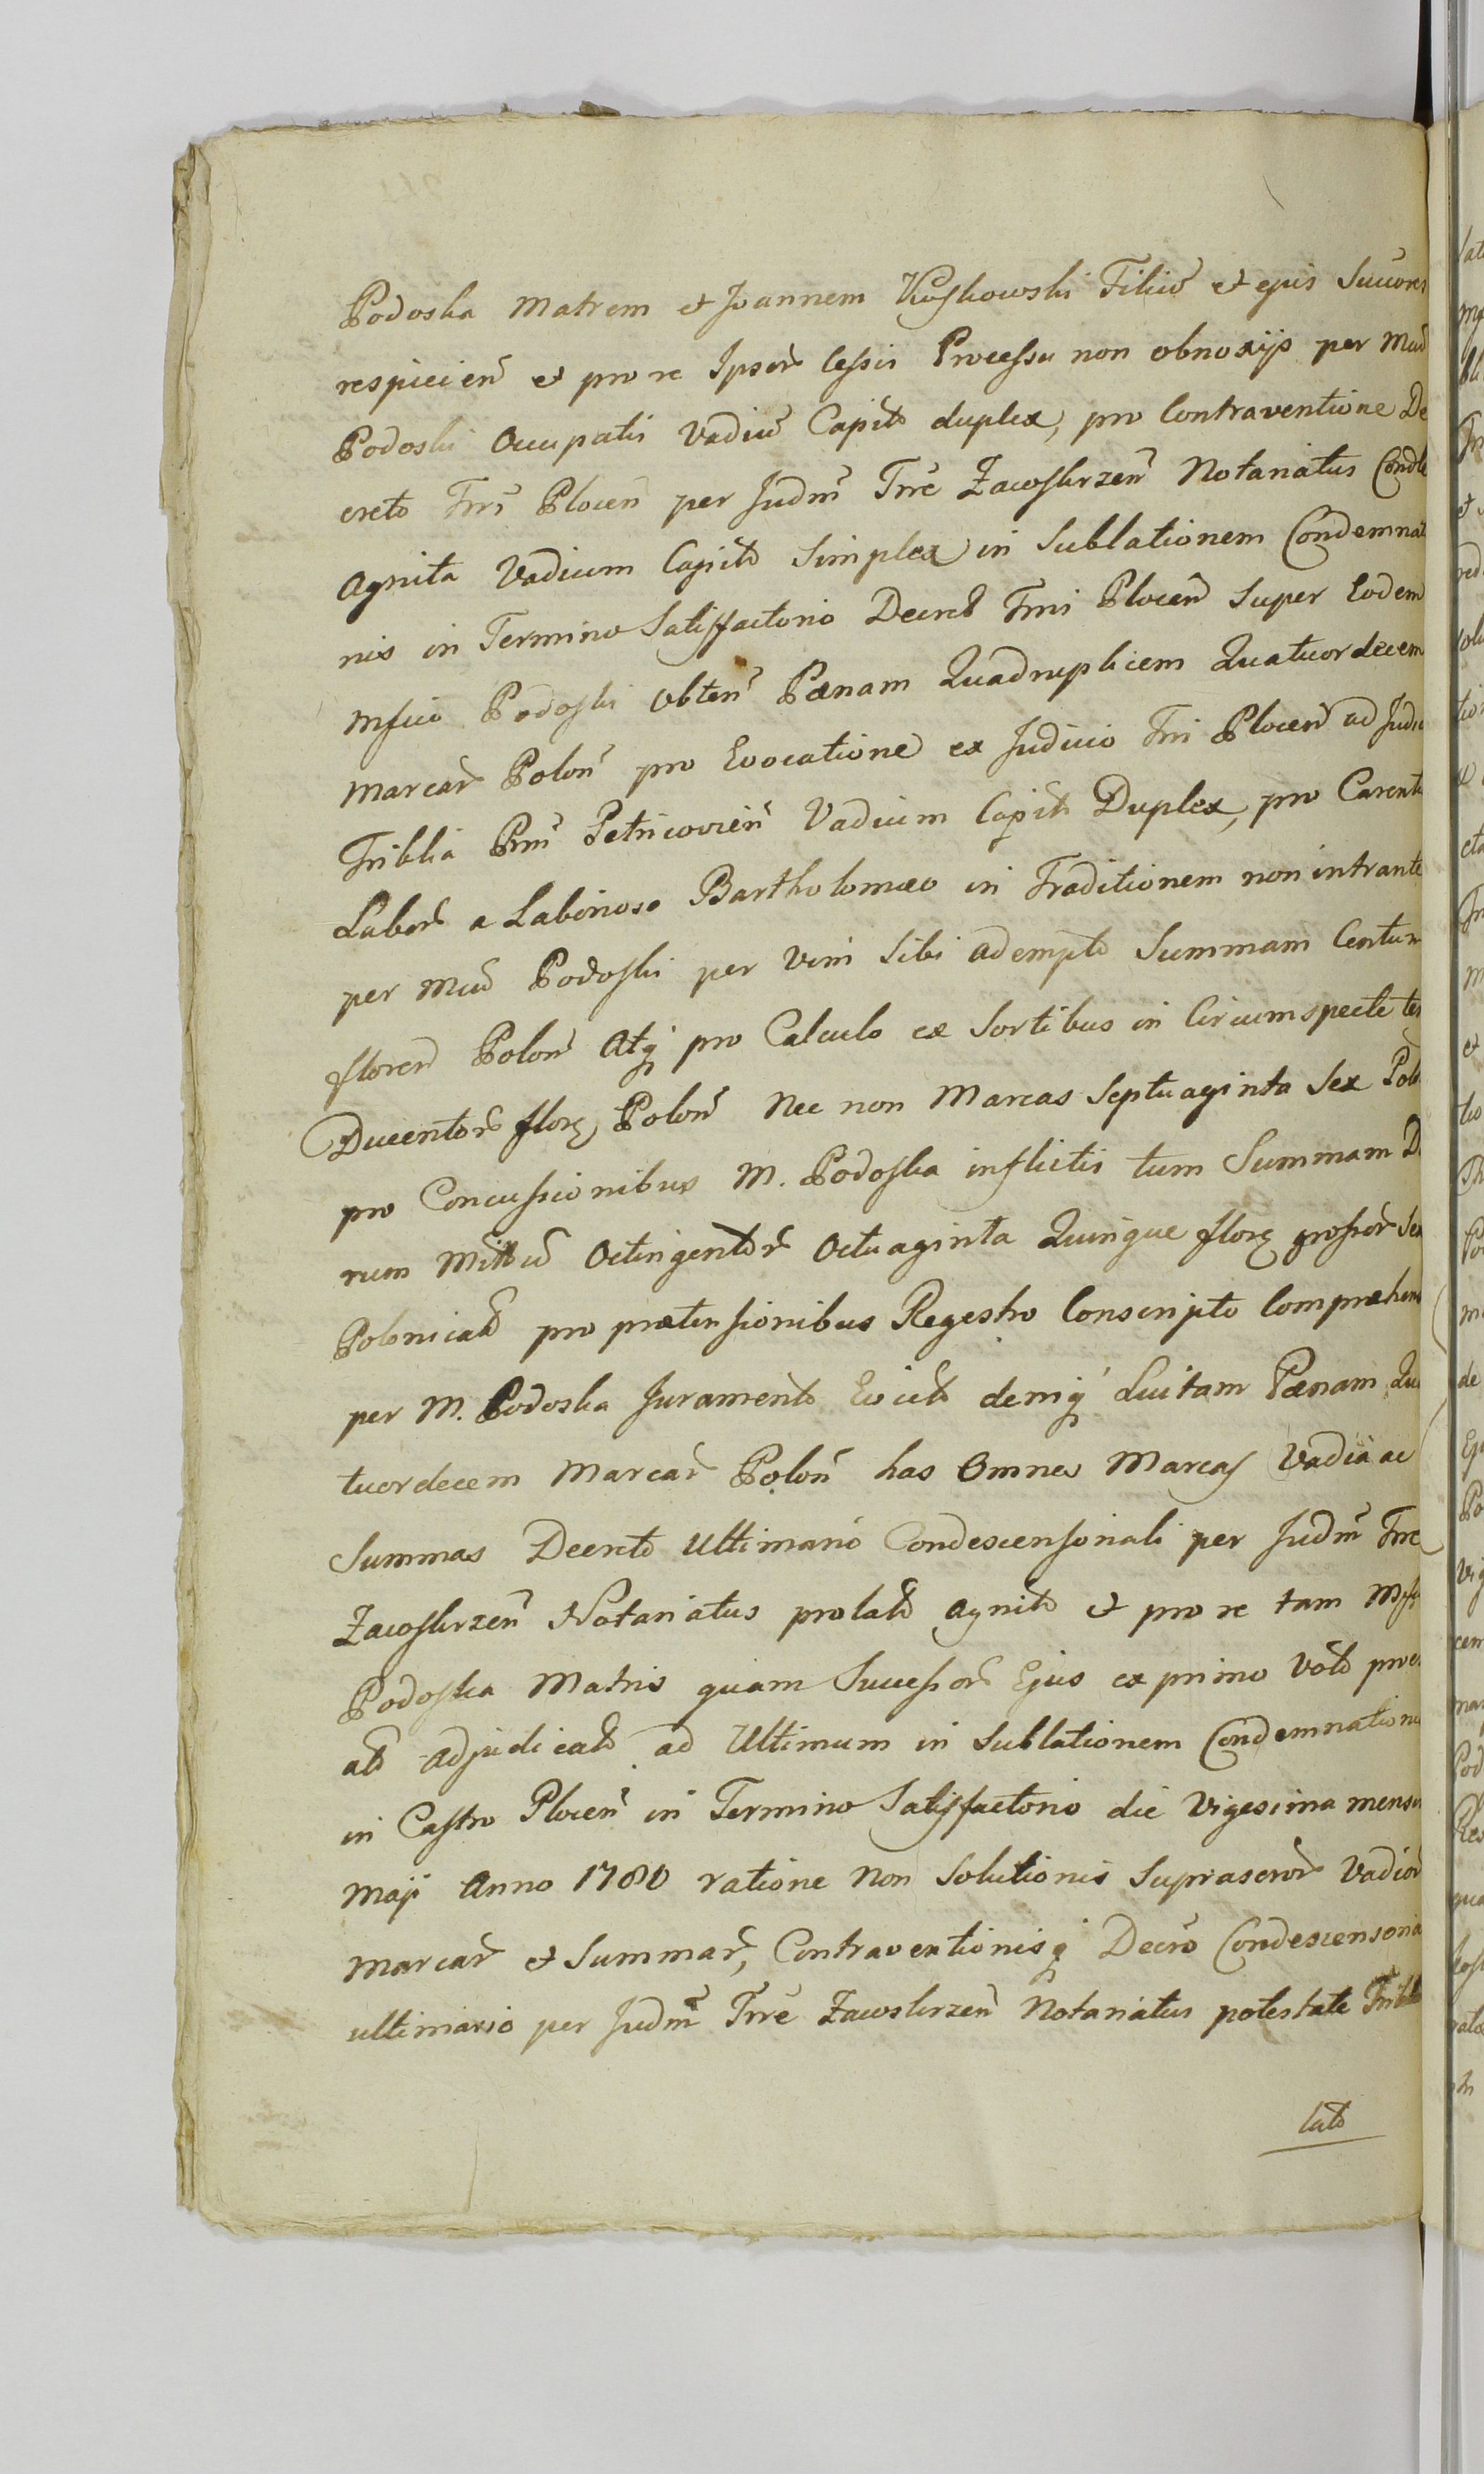 Podoska Matrem et Joannem Kuskowski Filiū et ejus
respicien̄ et pro re Ipsor̄ Cessis Processu non obnoxijs per
Podoski Occupatis Vadiū Capit̄o duplex, pro Contraventione De
creto Trri Plocen̄ per Judm̄ Trre Zawskrzen̄ Notariatus
agnita Vadium Capit̄o Simplex in Sublationem Condemnat
nis in Termino Satisfactorio Trri Plocen̄ Super Eodem
Podoski obten̄ Pœnam Quadruplicem Quatuordecem
Marcar̄ Polon̄ pro Evocatione ex Judicio Trri Plocen̄ ad
Triblia Petricovien̄ Vadium Capit̄o Duplex, pro
Labor̄ a Laborioso Bartholomæo in Traditionem non intrante
per Podoski per vim Sibi adempt̄o Summam Centum
floren̄ Polon̄ Atq; pro Calculo ex Sortibus in
Ducentor̄ flor; Polon̄ Nec non Marcas Septuaginta Sex
pro Concussionibus M. Podoska inflictis tum Summam
rum Octingentor̄ Octuaginta Quinque flor; grossor̄
pro prætensionibus Regestro Conscripto
per M. Podoska Jurament̄o deniq; Luitam Pœnam
tuordecem Marcar̄ Polon̄ has Omnes Marcas Vadia ac
Summas Decret̄o Ultimario Condescensionali per Judm̄ Trre
Zawskrzen̄ Notariatus prolat̄o agnit̄o et pro re tam
Podoska Matris quam Successor̄ Ejus ex primo Vot̄o
adjudicat̄o ad Ultimum in Sublationem Condemnationis
in Castro Plocen̄ in Termino Satisfactorio die Vigesima mensis
Maji Anno 1780 ratione Non Solutionis Suprascr̄or̄ Vadior̄
Marcar̄ et Summar̄, Contraventionisq; Decr̄o
ultimario per Judm̄ Trre Zawskrzen̄ Notariatus potestate
lat̄o